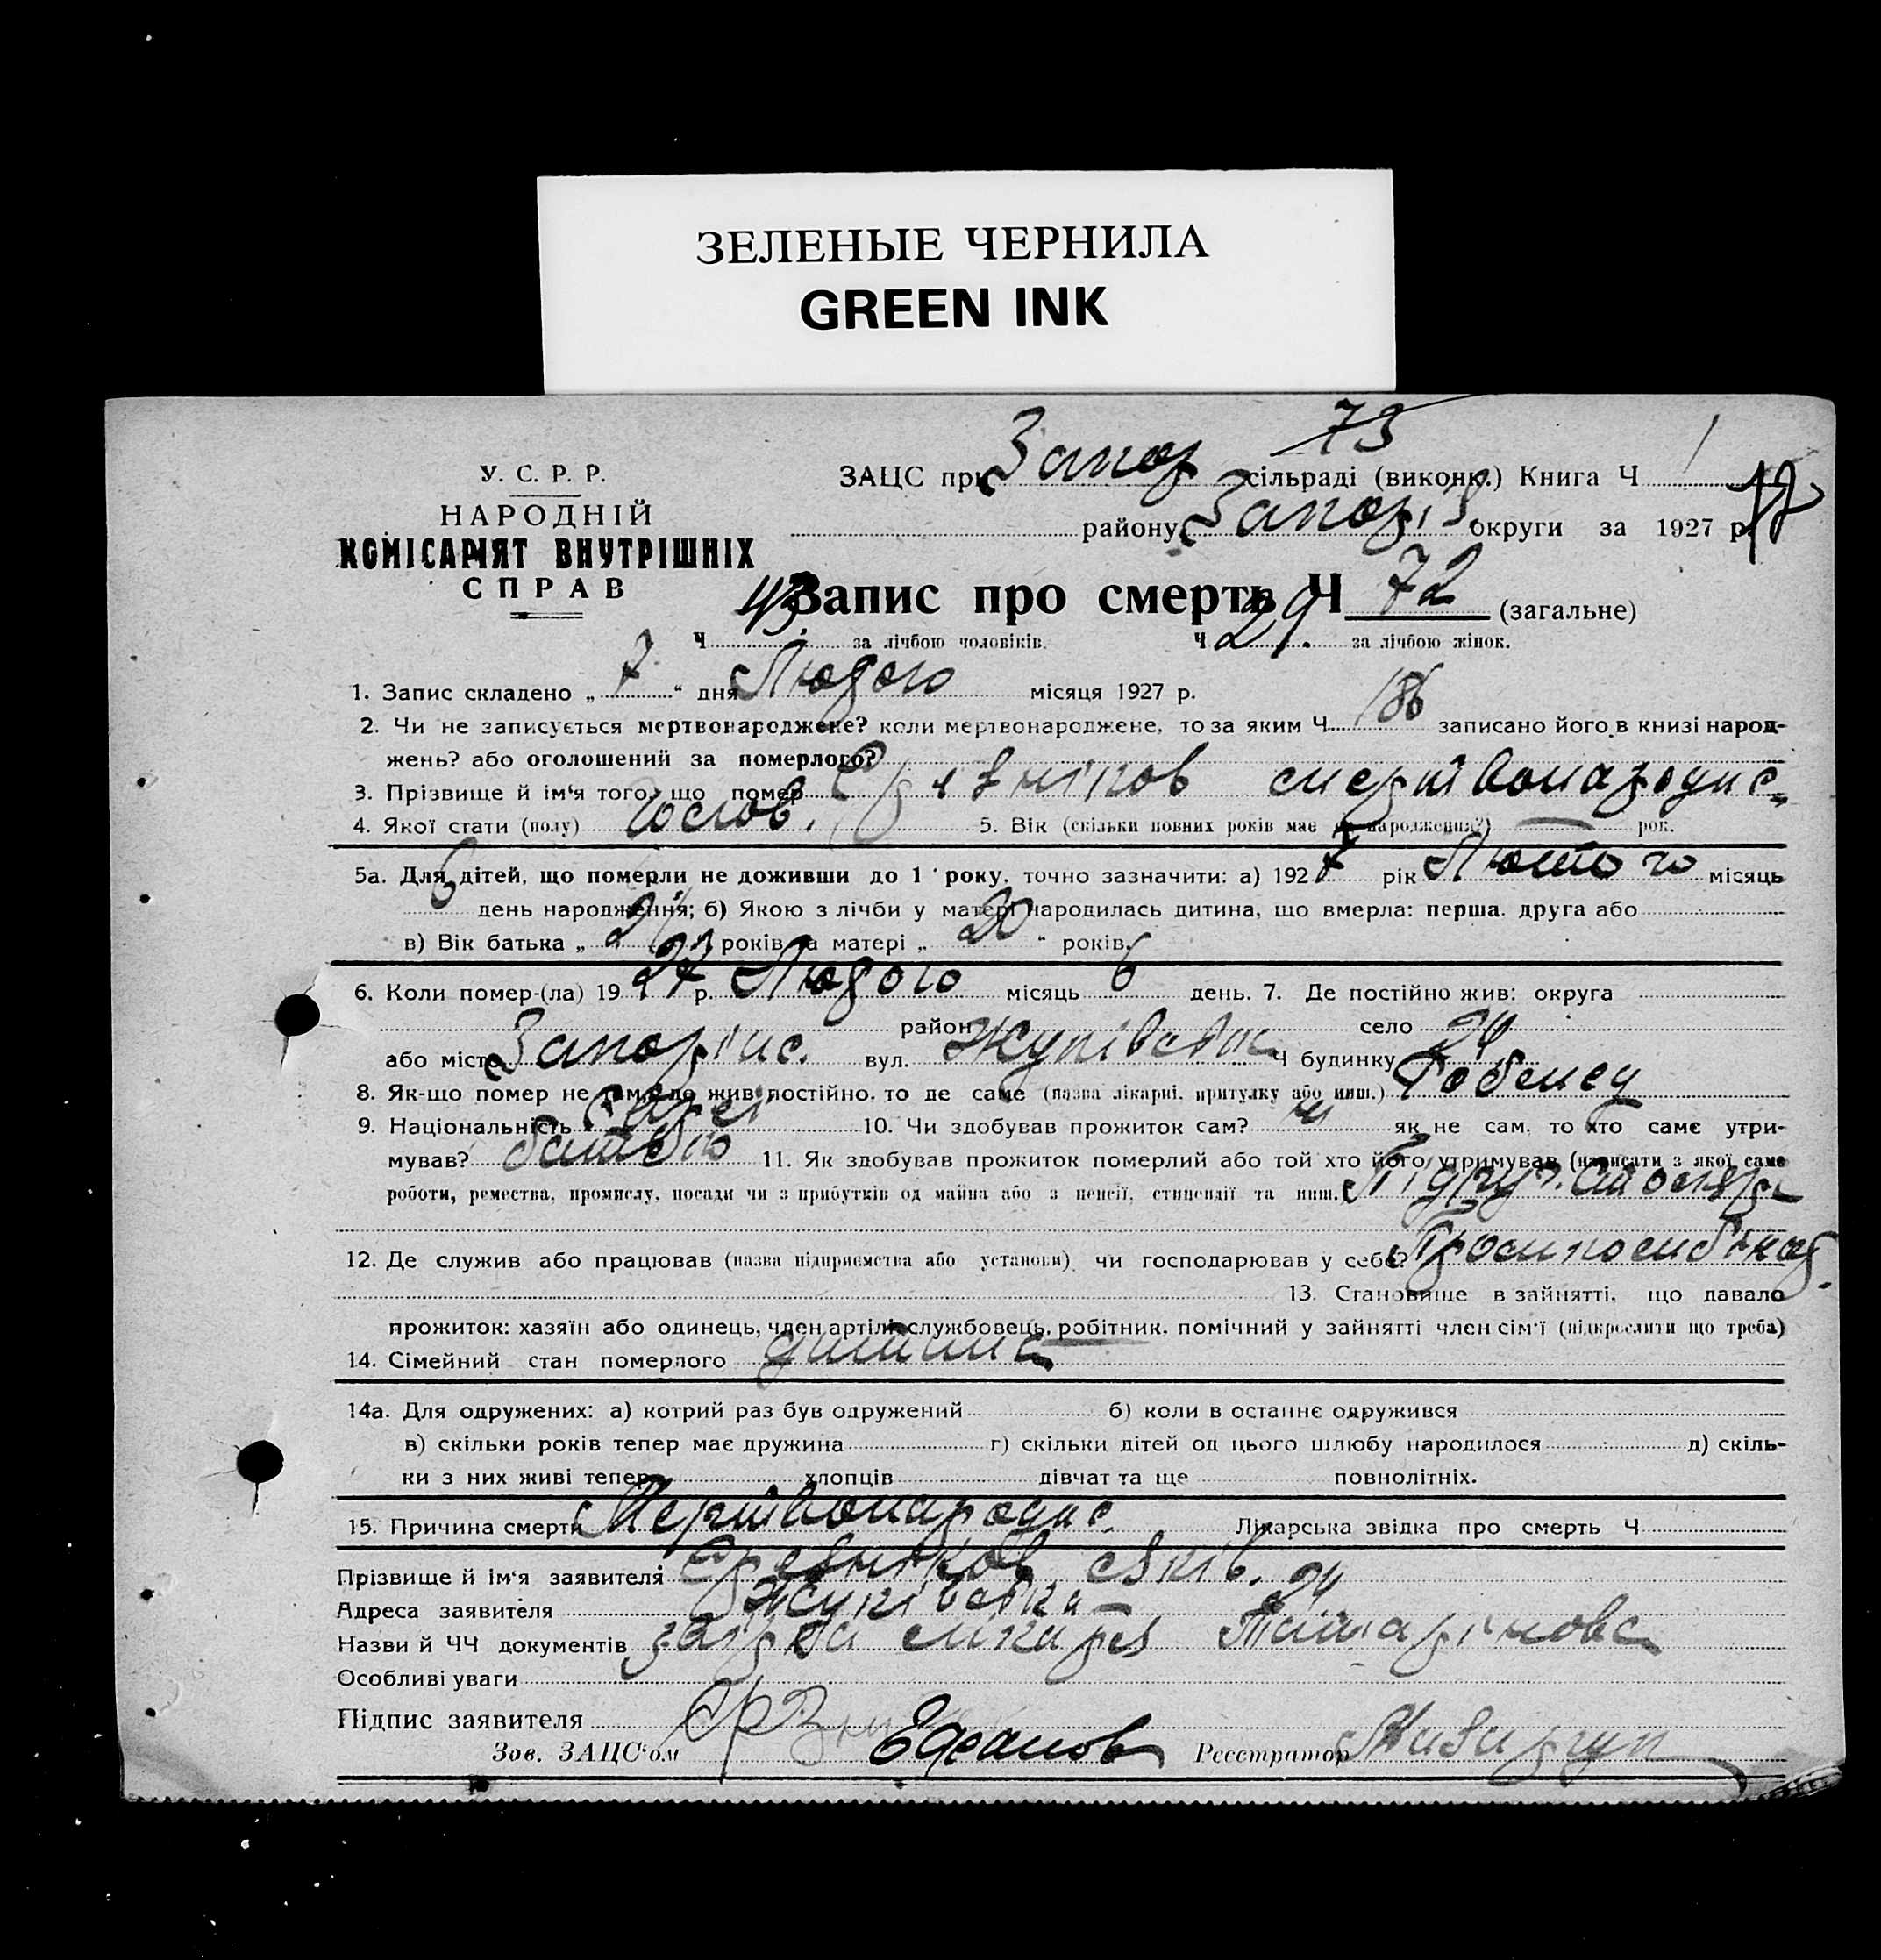 ЗЕЛЕНЫЕ ЧЕРНИЛА
GREEN INK
73
У. С. Р. Р.
НАРОДНІЙ
КОМІСАРІЯТ ВНУТРІШНІХ
СПРАВ
ЗАЦС при Запор сільраді (виконк.) Книга Ч 1
району Запоріз округи за 1927 р.
Запис про смерть Ч 72 (загальне)
Ч 43. за лічбою чоловіків. Ч 29. за лічбою жінок.
1. Запис складено „ 7 “ дня Лютого місяця 1927 р.
2. Чи не записується мертвонароджене? коли мертвонароджене, то за яким Ч 186 записано його в книзі народ-
жень? або оголошений за померлого?
3. Прізвище й ім‘я того, що помер
4. Якої стати (полу) чолов. 5. Вік (скільки повних років має од народження?) — рок.
5а. Для дітей, що померли не доживши до 1 року, точно зазначити: а) 1927 рік Лютого місяць
6 день народження; б) Якою з лічби у матері народилась дитина, що вмерла: перша, друга або
в) Вік батька „ років а матері „ 20 “ років.
6. Коли помер-(ла) 1927 р. Лютого місяць 6 день. 7. Де постійно жив: округа
район село
або місто вул. Жуківська Ч будинку 24
8. Як-що помер не там, де жив постійно, то де саме (назва лікарні, притулку або инш.)
9. Національність 10. Чи здобував прожиток сам? ні як не сам, то хто саме утри-
мував? батько 11. Як здобував прожиток померлий або той хто його утримував (написати з якої саме
роботи, ремества, промислу, посади чи з прибутків од майна або з пенсії, стипендії та инш.)
12. Де служив або працював (назва підприємства або установи), чи господарював у себе?
13. Становище в зайнятті, що давало
прожиток: хазяїн або одинець, член артілі, службовець, робітник, помічний у зайнятті член сім‘ї (підкреслити що треба)
14. Сімейний стан померлого дитина
14а. Для одружених: а) котрий раз був одружений б) коли в останнє одружився
в) скільки років тепер має дружина г) скільки дітей од цього шлюбу народилося д) скіль-
ки з них живі тепер хлопців дівчат та ще повнолітніх.
15. Причина смерти Мертвонародже. Лікарська звідка про смерть Ч
Прізвище й ім‘я заявителя
Адреса заявителя Жуківська 24
Назви й ЧЧ документів лікаря
Особливі уваги
Підпис заявителя
Зов. ЗАЦС‘ом Реєстратор